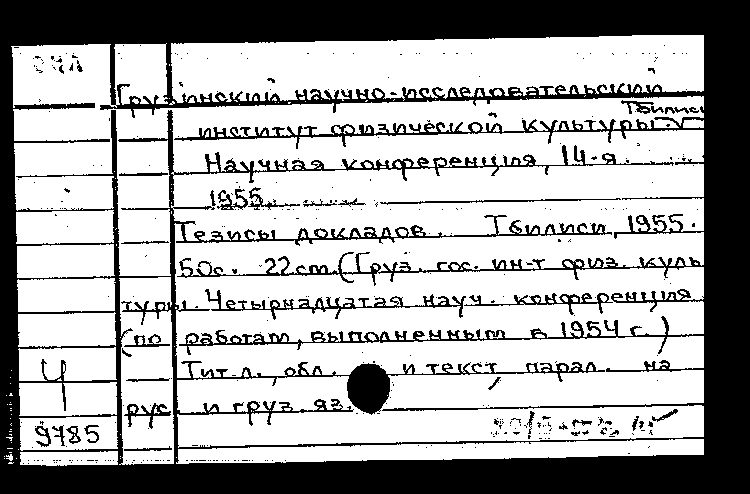 Грузинский научно-исследовательский
Тбилиси
институт физической культуры. V
Научная конференция, 14-я.
1955.
Тезисы докладов. Тбилиси, 1955.
50с. 22cm. (Груз. гос. ин-т физ. куль
туры. Четырнадцатая науч. конференция
(по работам, выполненным в 1954 г.)
Тит. л., обл. и текст, парал. на
рус. и груз. яз.
Ч
9785